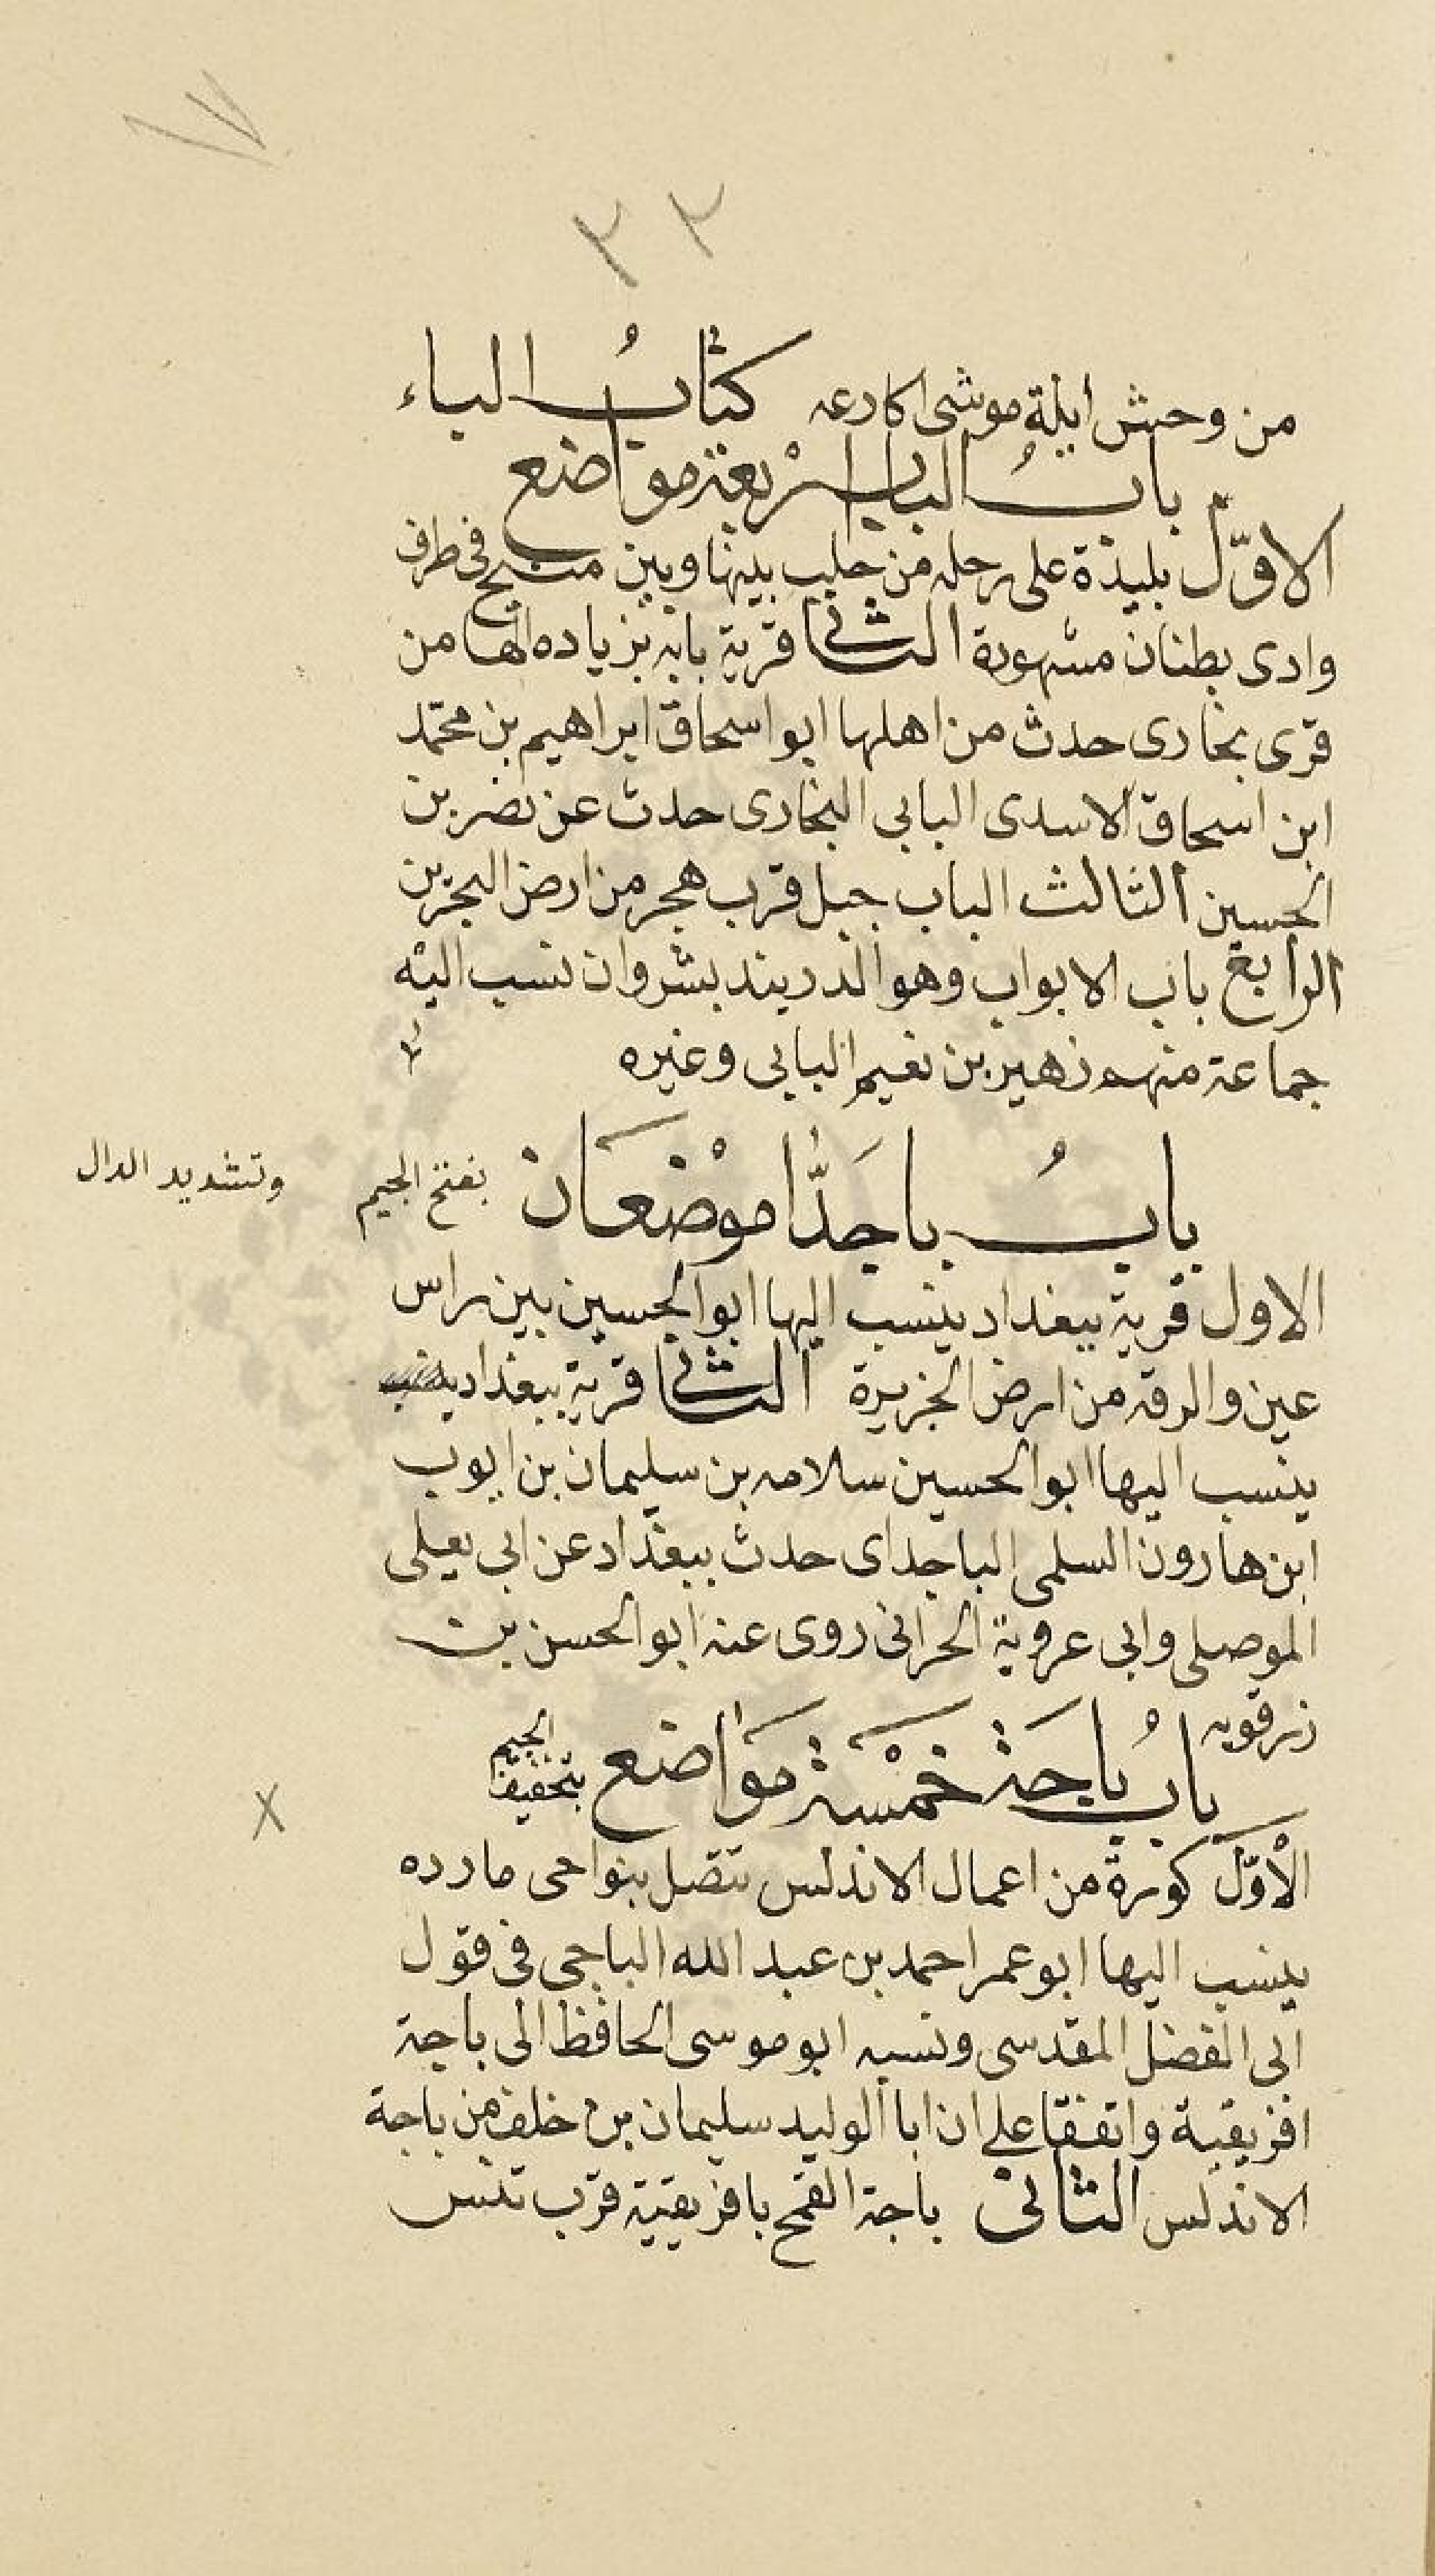 ١٧
٣٢
من وحش ايلة موشى اكارعه كتاب الباء
باب الباب اربعة مواضع
الاوّل بليدة على مرحله من حلب بينها وبين منبج فى طرف
وادى بطنان مشهورة الثانى قرية بابه بزياده الها من
قرى بخارى حدث من اهلها ابو اسحاق ابراهيم بن محمّد
ابن اسحاق الاسدى البابى البخارى حدث عن نصر بن
الحسين الثالث الباب جبل قرب هجر من ارض البحرين
الرابع باب الابواب وهو الدربند بشروان نسب اليه
جماعة منهم زهير بن نعيم البابى وغيره
بابُ باجَدَّا موْضعَان بفتح الجيم وتشديد الدال
الاول قرية ببغداد ينسب اليها ابو الحسين بين راس
عين والرقه من ارض الجزيرة الثانى قرية ببغداد
ينسب اليها ابو الحسين سلامه بن سليمان بن ايوب
ابن هارون السلمى الباجداى حدث ببغداد عن ابى يعلى
الموصلى وابى عروبة الحرانى روى عنه ابو الحسن بن
زرقويه
بابُ باجَة خمْسَة مَوَاضع بتخفيف الجيم
الْاوّل كورة من اعمال الاندلس تتصل بنواحى مارده
ينسب اليها ابو عمر احمد بن عبد الله الباجى فى قول
ابى الفضل المقدسى ونسبه ابو موسى الحافظ الى باجة
افريقية واتفقا على ان ابا الوليد سليمان بن خلف من باجة
الاندلس الثانى باجة القمح بافريقية قرب تنس